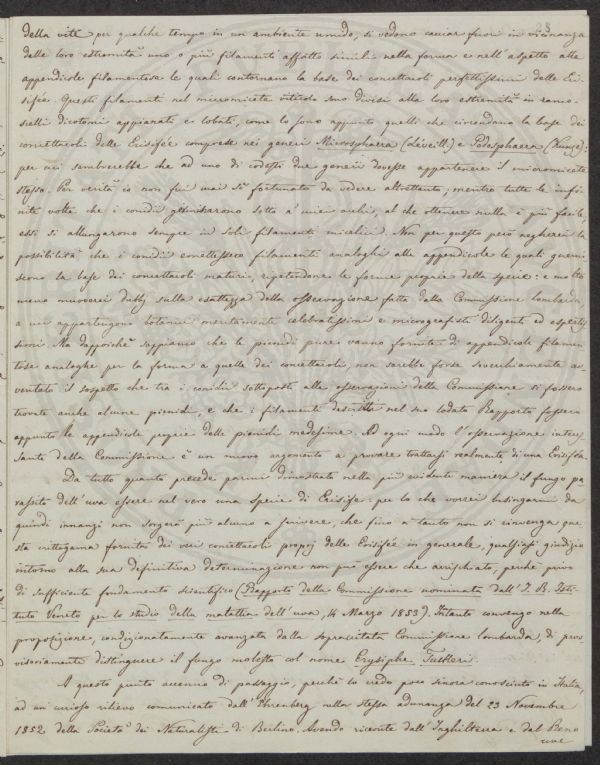 della vite per qualche tempo in un ambiente umido, si vedono cacciar fuori in vicinanza
delle loro estremità uno o più filamenti affatto simili nella forma e nell'aspetto alle
appendicole filamentose le quali contornano la base dei concettacoli perfettissimi delle Eri-
sifée. Questi filamenti nel micromicete viticolo sono divisi alla loro estremità in ramo-
scelli dicotomi appianati e lobati, come lo sono appunto quelli che circondano la base dei
concettacoli delle Erisifée comprese nei generi Microsphaera (Léveill.) e Podosphaera (Kunze):
per cui sembrerebbe che ad uno di codesti due generi dovesse appartenere il micromicete
stesso. Per verità io non fui mai sì fortunato da vedere altrettanto, mentre tutte le infi-
nite volte che i conidi germinarono sotto a' miei occhi, al che ottenere nulla è più facile,
essi si allungarono sempre in soli filamenti micelini. Non per questo però negherei la
possibilità che i conidi emettessero filamenti analoghi alle appendicole le quali guerni-
scono la base dei concettacoli maturi, ripetendone le forme proprie della specie: e molto
meno muoverei dubbj sulla esattezza della osservazione fatta dalla Commissione lombarda,
a cui appartengono botanici meritamente celebratissimi e micrografisti diligenti ed espertis-
simi. Ma dappoichè sappiamo che le picnidi pure vanno fornite di appendicole filamen-
tose analoghe per la forma a quelle dei concettacoli, non sarebbe forse soverchiamente av-
ventato il sospetto che tra i conidi sottoposti alle osservazioni della Commissione si fossero
trovate anche alcune picnidi, e che i filamenti descritti nel suo lodato Rapporto fossero
appunto le appendicole proprie delle picnidi medesime. Ad ogni modo l'osservazione interes-
sante della Commissione è un nuovo argomento a provare trattarsi realmente di una Erisifea.
Da tutto quanto precede parmi dimostrato nella più evidente maniera il fungo pa-
rassito dell'uva essere nel vero una specie di Erisife: per lo che vorrei lusingarmi da
quindi innanzi non sorgerà più alcuno a scrivere, che fino a tanto non si rinvenga que-
sta crittogama fornita dei veri concettacoli proprj delle Erisifée in generale, qualsiasi giudizio
intorno alla sua definitiva determinazione non può essere che arrischiato, perchè privo
di sufficiente fondamento scientifico (Rapporto della Commissione nominata dall'I. R. Isti-
tuto Veneto per lo studio della malattia dell'uva, 14 Marzo 1853). Intanto convengo nella
proposizione, condizionatamente avanzata dalla sopracitata Commissione lombarda, di prov-
visoriamente distinguere il fungo molesto col nome Erysiphe Tuckeri.
A questo punto accenno di passaggio, perchè lo credo poco sinora conosciuto in Italia,
ad un curioso rilievo comunicato dall'Ehrenberg nella stessa adunanza del 23 Novembre
1852 della Società dei Naturalisti di Berlino. Avendo ricevute dall'Inghilterra e dal Reno
uve